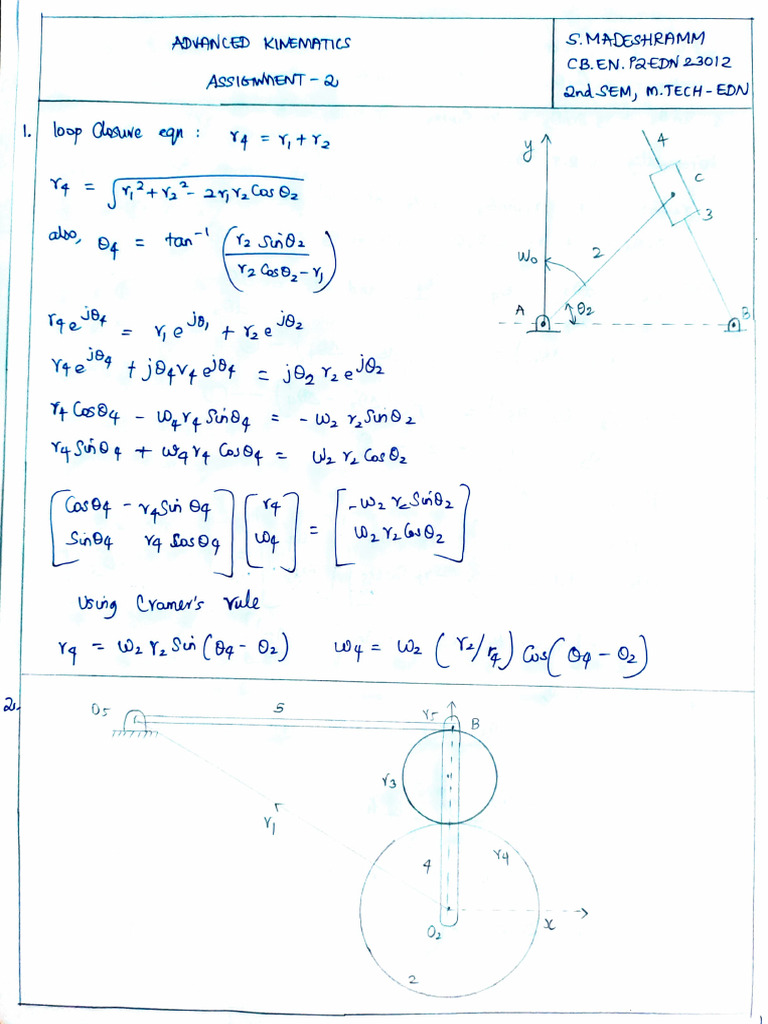 ADVANCED KINEMATICS
ASSIGNMENT - 2
S. MADESHRAMM
CB.EN.P2EDN23012
2nd-SEM, M.TECH-EDN
1. loop closure eqn : r4 = r1 + r2
r4 = √(r1² + r2² - 2r1r2 Cos θ2)
also, θ4 = tan⁻¹ (r2 Sinθ2 / r2 Cosθ2 - r1)
r4 e^jθ4 = r1 e^jθ1 + r2 e^jθ2
r4 e^jθ4 + jθ4 r4 e^jθ4 = jθ2 r2 e^jθ2
r4 Cosθ4 - ω4 r4 Sinθ4 = - ω2 r2 Sinθ2
r4 Sinθ4 + ω4 r4 Cosθ4 = ω2 r2 Cosθ2
[Cosθ4 - r4 Sin θ4] [r4] = [-ω2 r2 Sinθ2]
[Sinθ4 r4 Cosθ4] [ω4] [ω2 r2 Cosθ2]
Using Cramer's rule
r4 = ω2 r2 Sin (θ4 - θ2) ω4 = ω2 (r2/r4) Cos (θ4 - θ2)
y
4
C
3
2
ω0
A
θ2
B
2.
O5
5
r5
B
r3
r1
4
r4
O2
x
2